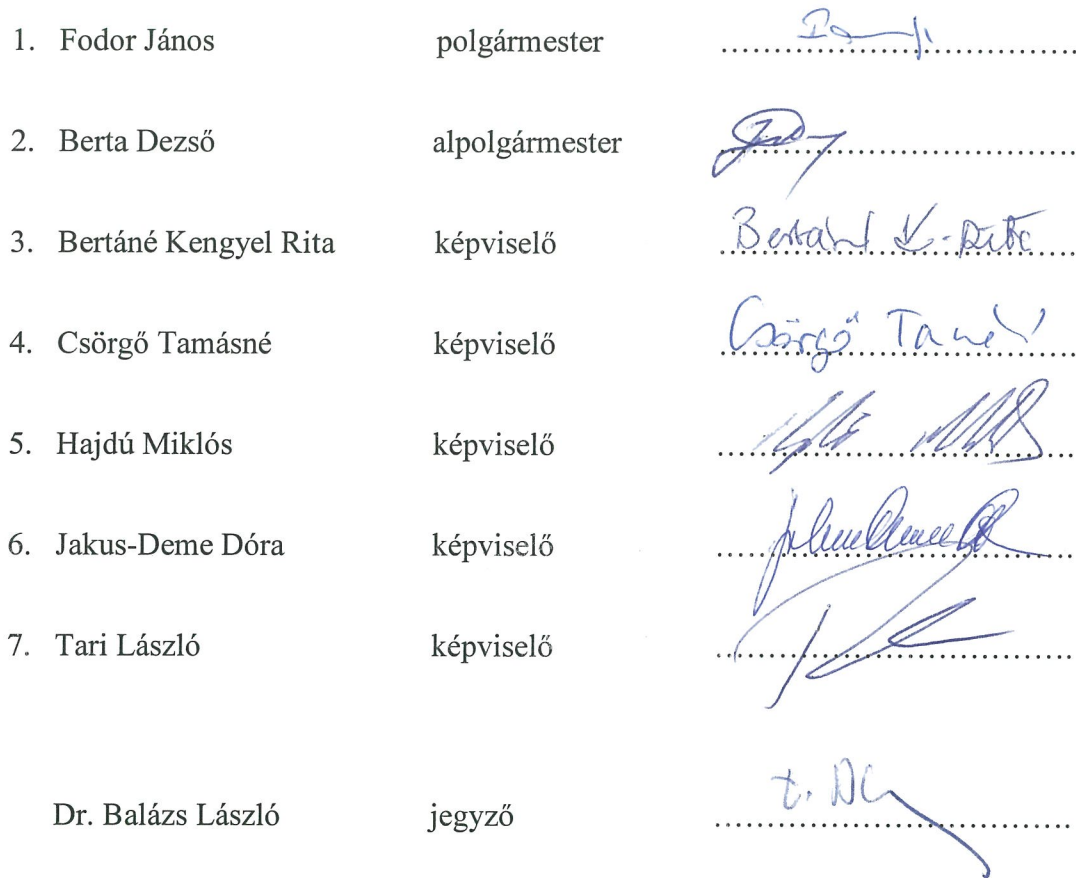 1. Fodor János polgármester
2. Berta Dezső alpolgármester
3. Bertáné Kengyel Rita képviselő Bertáné K. Rita
4. Csörgő Tamásné képviselő Csörgő Tamásné
5. Hajdú Miklós képviselő
6. Jakus-Deme Dóra képviselő
7. Tari László képviselő
Dr. Balázs László jegyző